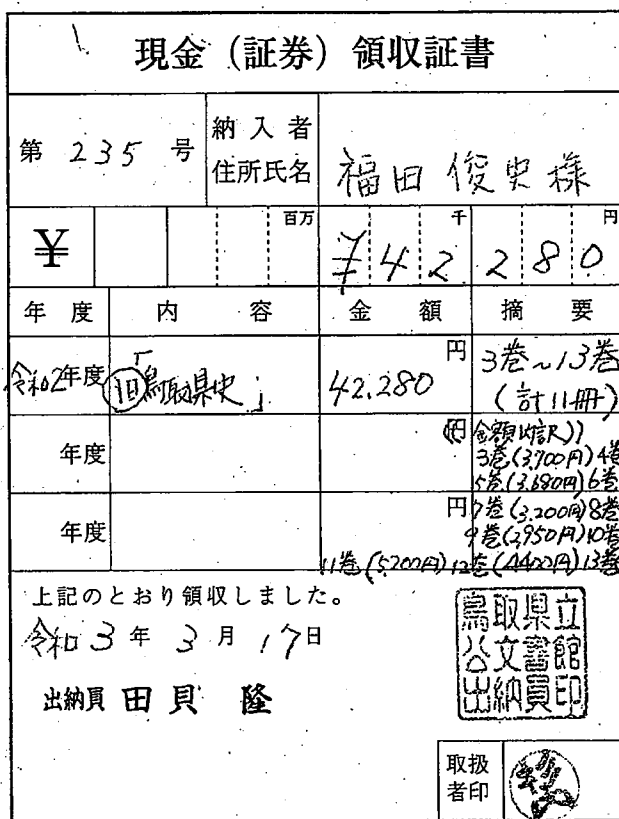 現金（証券）領収証書
第 235 号
納入者
住所氏名
福田 俊史 様
百万 千 円
¥ ¥42280
年度 内容 金額 摘要
令和2年度 「旧鳥取県史」 42,280 円 3巻～13巻
(計11冊)
年度 円 金額内訳))
3巻(3,700円)4巻
5巻(3,680円)6巻
年度 円 7巻(3,200円)8巻
9巻(2950円)10巻
11巻(5200円)12巻(4400円)13巻
上記のとおり領収しました。
令和 3 年 3 月 17 日
出納員 田貝 隆
鳥取県立
公文書館
出納員印
取扱
者印